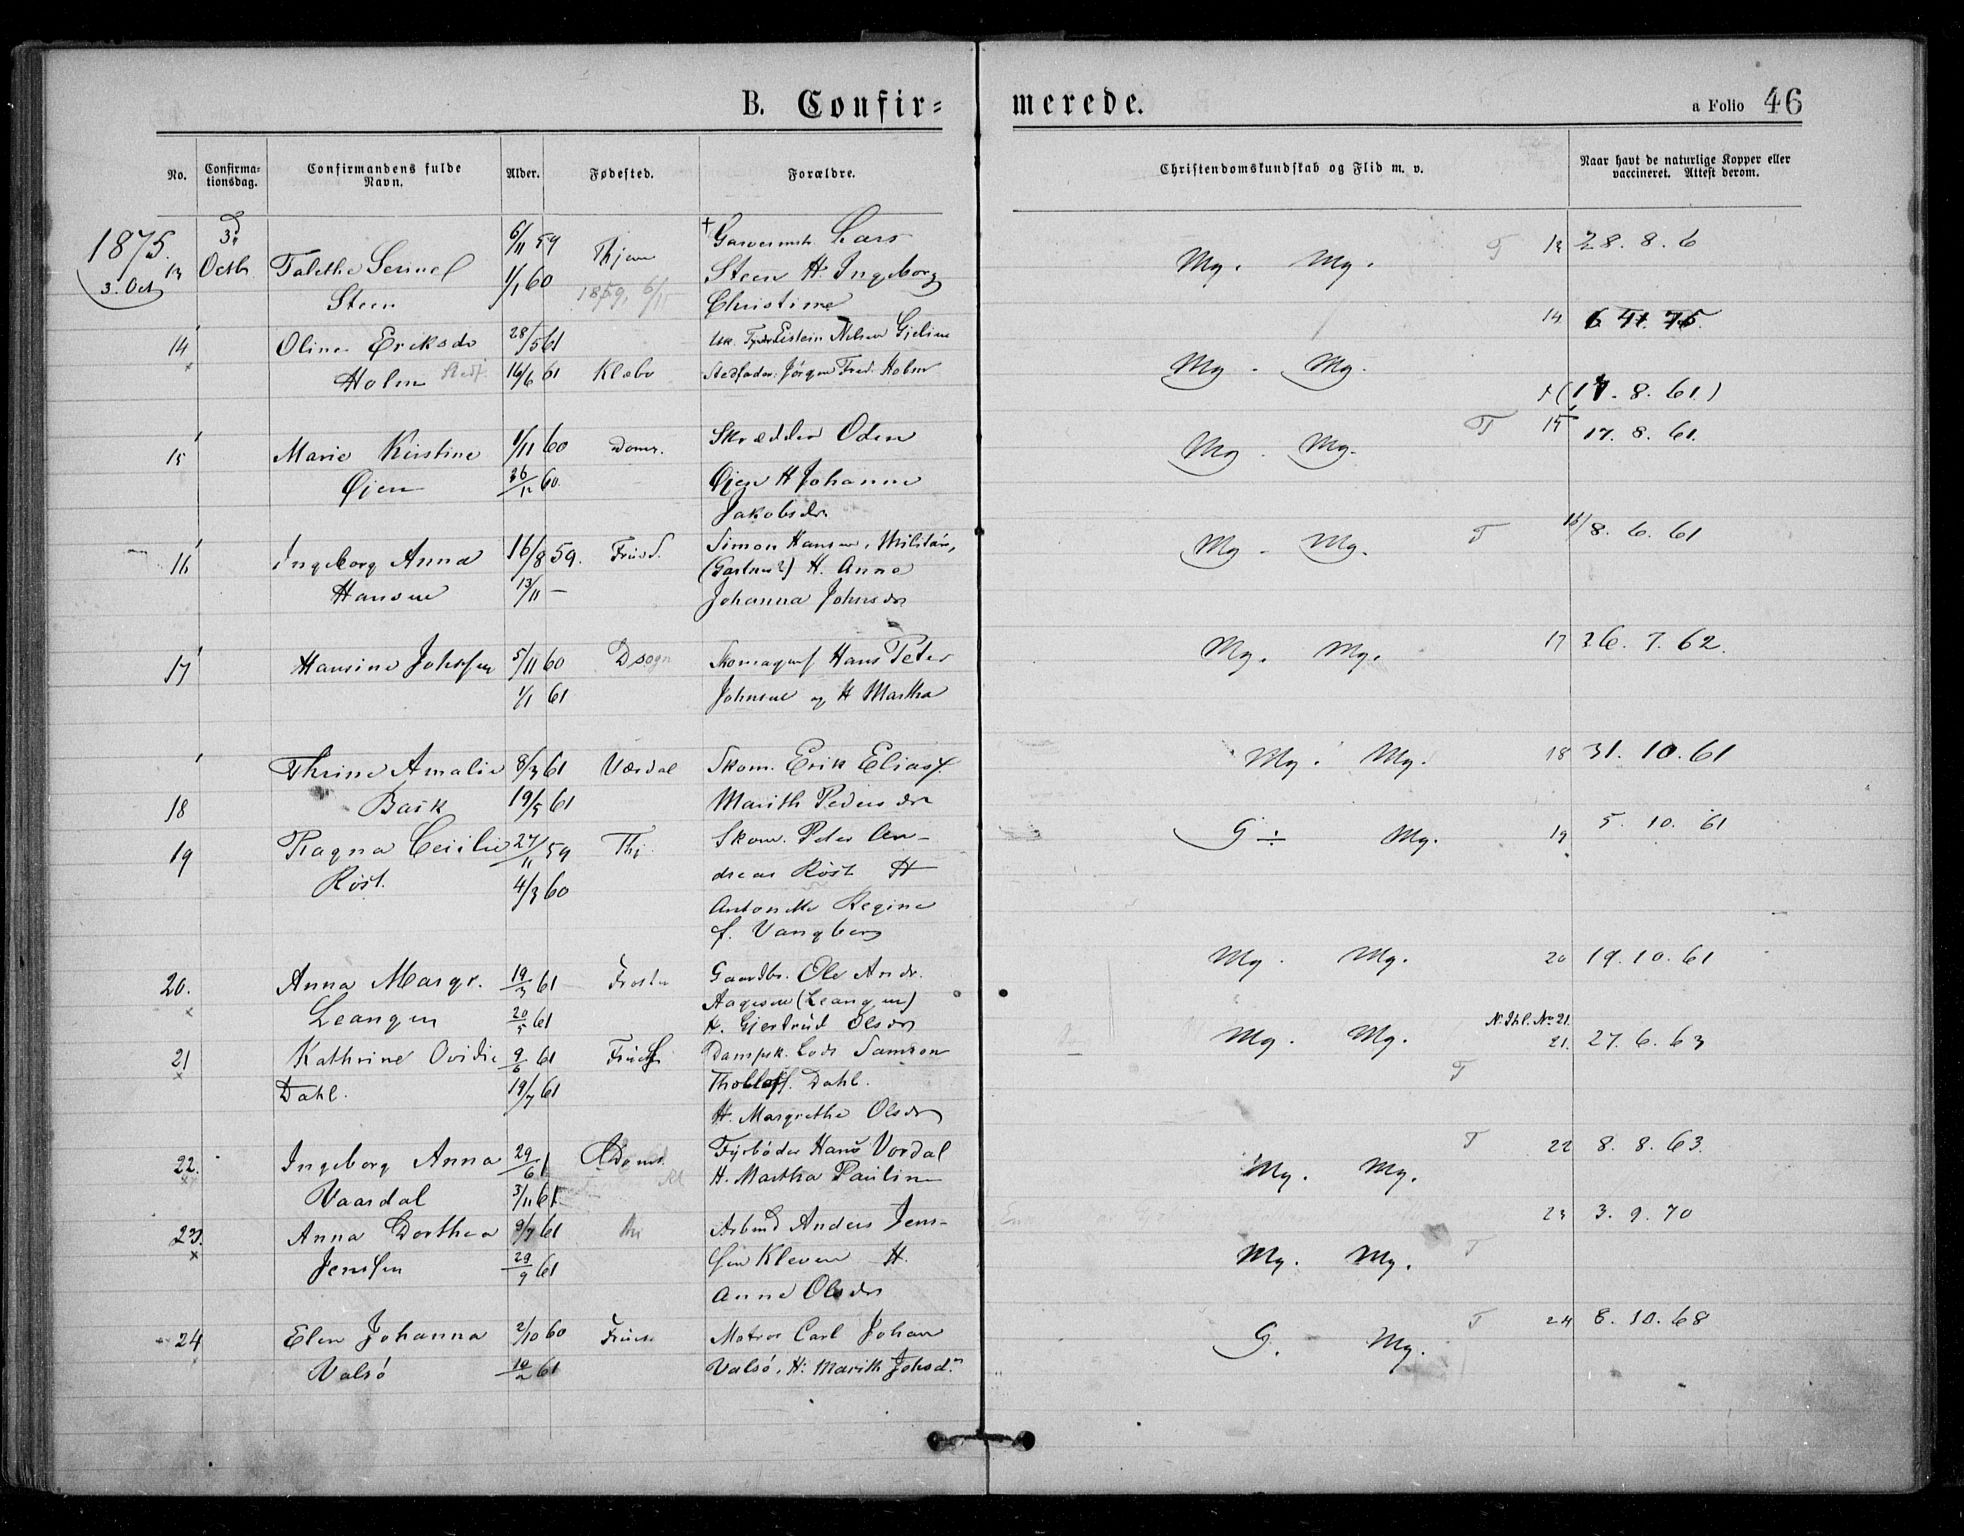 B. Confir=
merede.
a Folio 46
No.
Confirma-
tionsdag.
Confirmandens fulde
Navn.
Alder.
Fødested.
Forældre.
Christendomskundskab og Flid m. v.
Naar havt de naturlige Kopper eller
vaccineret. Attest derom.
1875.
3. Oct
13 3d Octbr 6/11 59 Lars
Steen H. Ingeborg
1/1 60 1859, 6/11
Steen Christine
Mg. Mg. T 13 28. 8. 6
14 Oline Eriksdr 28/5 61 Eistein Nelsen
Holm Stedf. 16/6 61 Klæbo Stedfader. Jørgen Fred. Holm
Mg. Mg. 14
(17. 8. 61.)
15 Marie Kirstine 1/11 60 Domk. Skrædder Oden
Øjen 26/12 60 Øjen H Johanne
Jakobsdr
Mg. Mg. T 15 17. 8. 61.
16 Ingeborg Anna 16/8 59. Simon Hansen, Militær,
Hansen 13/11 — (Gartner?) H. Anne
Johanna Johnsdr
Mg. Mg. T 16 8. 6. 61
17 Hansine Johnsen 5/11 60 Dsogn Hans Peter
1/1 61 Johnsen og H Martha
Mg. Mg. 17 26. 7. 62.
18 Thrine Amalie 8/3 61 Værdal Skom. Erik Eliass.
Bask 19/5 61 Marith Pedersdr
Mg. Mg. 18 31. 10. 61
19 Ragna Cecilie 27/11 59 Thj. Skom. Peter An-
Röst. 4/3 60 dreas Röst H
Antonette Regine
f. Vangberg
G ÷ Mg. 19 5. 10. 61
20. Anna Margr. 19/3 61 Frosta Gaardbr. Ole Andr.
Leangen 20/5 61 Aagesen (Leangen)
H. Gjertrud Olsdr
Mg. Mg. 20 19. 10. 61
21 Kathrine Ovidie 9/6 61 Dampsk. Lods Samson
Dahl. 14/7 61 Dahl.
H. Margrethe Olsdr
Mg. Mg. T N. Ihl. No 21.
21. 27. 6. 63
22. Ingeborg Anna 29/6 61 Domk. Fyrböder Hans Vordal
Vaardal 3/11 61. H. Martha Pauline
Mg. Mg. T 22 8. 8. 63.
23. Anna Dorthea 9/7 61 Thj Arbmd Anders Jens-
Jenssen 29/9 61 sen Kleven H.
Anne Olsdr
Mg. Mg. T 23 3. 9. 70
24 Elen Johanna 2/10 60 Matros Carl Johan
Valsö 10/2 61 Valsö, H. Marith Johsdr
G. Mg. T 24 8. 10. 68